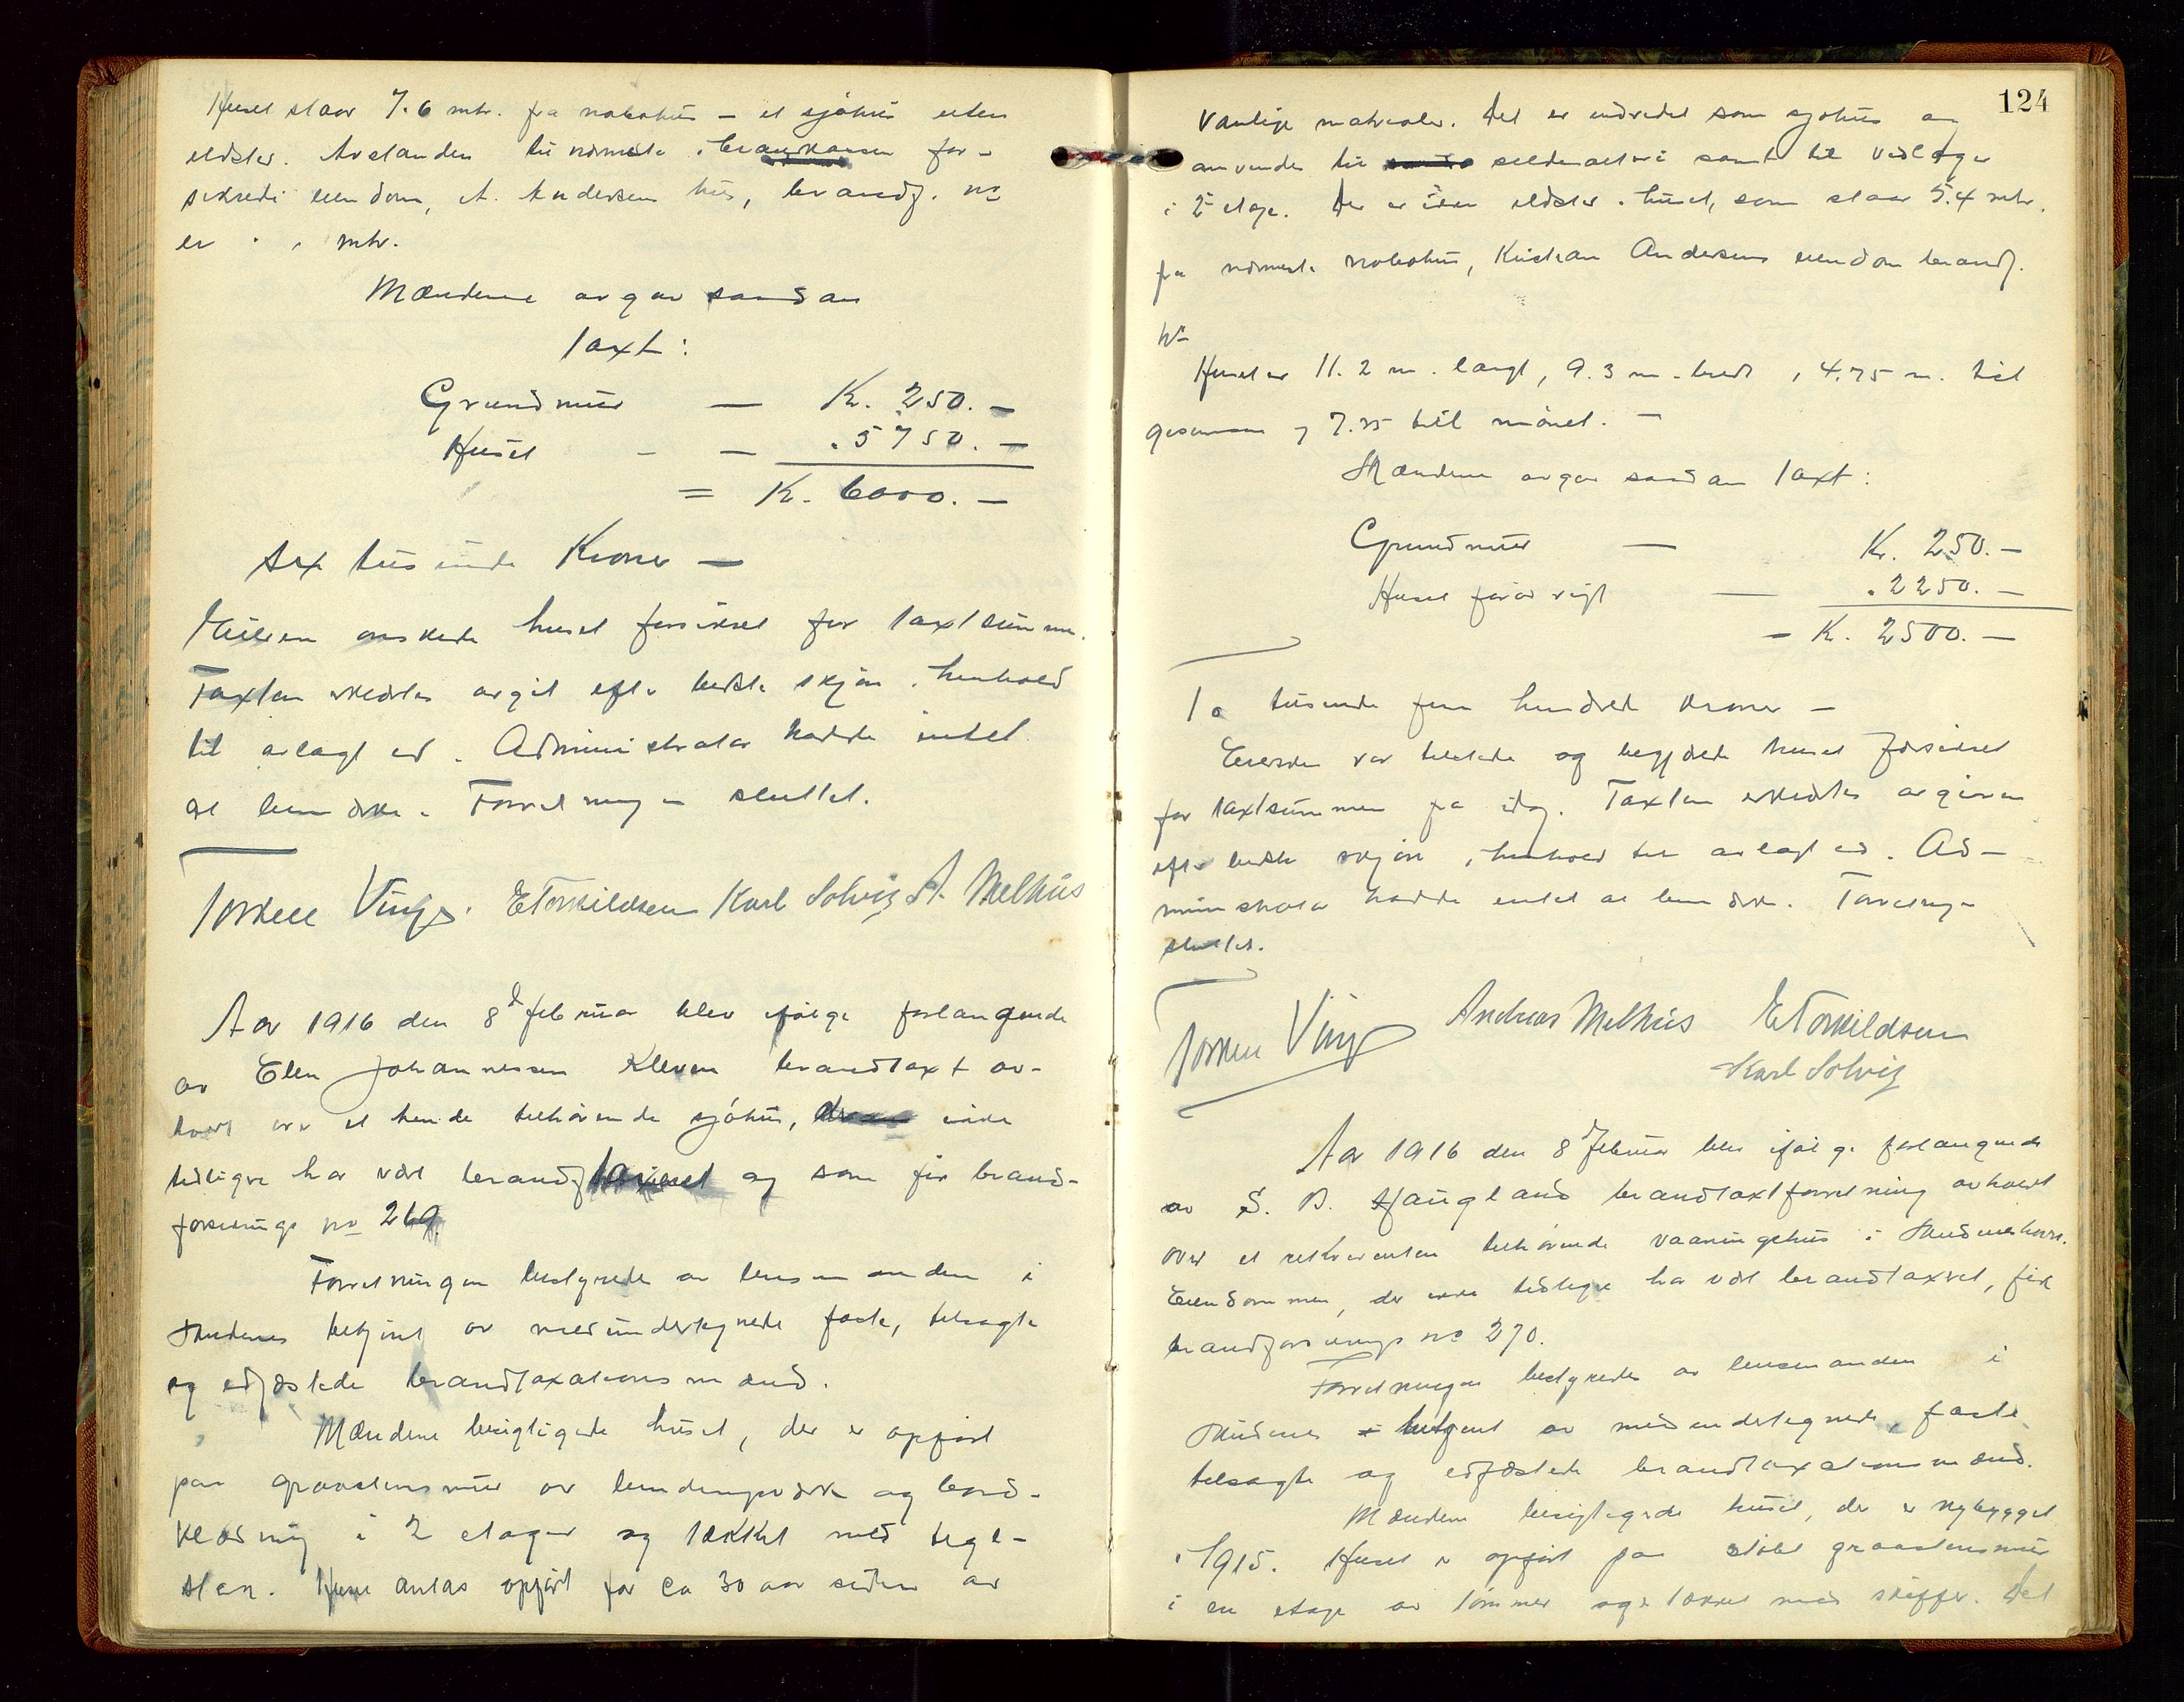 Huset staar 7.6 mtr. fra nabohus – et sjøhus uten
ildsted. Avstanden til nærmeste i brandkassen for-
sikrede eiendom, A. Andersens hus, brandf. no
er mtr.
Mændene avgav saadan
Taxt:
Grundmur — Kr. 250.—
Huset - — " 5750.—
= Kr. 6000.—
Sex tusinde Kroner —
Eieren ønskede huset forsikret for taxtsummen.
Taxten erklærtes avgit efter bedste skjøn i henhold
til avlagt ed. Administrator hadde intet
at bemærke. Forretningen sluttet.
Torkell Vinje. E Torkildsen Karl Solvig A. Melhus
Aar 1916 den 8d februar blev ifølge forlangende
av Elen Johannessen Kleven brandtaxt av-
holdt over et hende tilhørende sjøhus, som ikke
tidligre har vært brandtaxeret og som fik brand-
forsikrings no 269.
Forretningen bestyredes av lensmanden i
Skudenes betjent av medundertegnede faste, tilsagte
og edfæstede brandtaxationsmænd.
Mændene besigtigede huset, der er opført
paa graastensmur av bindingsværk og bord-
klædning i 2 etager og tækket med tegl-
sten. Huset antas opført for ca 30 aar siden av
124
vanlige materialer. Det er indredet som sjøhus og
anvendes til sildesalteri samt til vedlager
i 2den etage. Der er ikke ildsted i huset, som staar 5.4 mtr.
fra nærmeste nabohus, Kristian Andersens eiendom brandf.
No
Huset er 11.2 m. langt, 9.3 m. bredt, 4.75 m. til
gesimsen og 7.75 till mønet. —
Mændene avgav saadan Taxt:
Grundmur — Kr. 250.—
Huset forøvrigt — " 2250.—
= Kr. 2500.—
To tusinde fem hundrede kroner —
Eiersken var tilstede og begjærede huset forsikret
for taxtsummen fra idag. Taxten erklærtes avgiven
efter bedste skjøn i henhold til avlagt ed. Ad-
ministrator hadde intet at bemærke. Forretningen
sluttet.
Torkell Vinje Andreas Melhus E Torkildsen
Karl Solvig
Aar 1916 den 8d februar blev ifølge forlangende
av S. B. Haugland brandtaxtforretning avholdt
over et rekvirenten tilhørende vaaningshus i Skudeneshavn.
Eiendommen, der ikke tidligre har vært brandtaxeret, fik
brandforsikrings no 270.
Forretningen bestyredes av lensmanden i
Skudenes betjent av medundertegnede, faste
tilsagte og edfæstede brandtaxationsmænd.
Mændene besigtigede huset, der er nybygget
i 1915. Huset er opført paa støbt graastensmur
i en etage av tømmer og er tækket med skiffer. Det